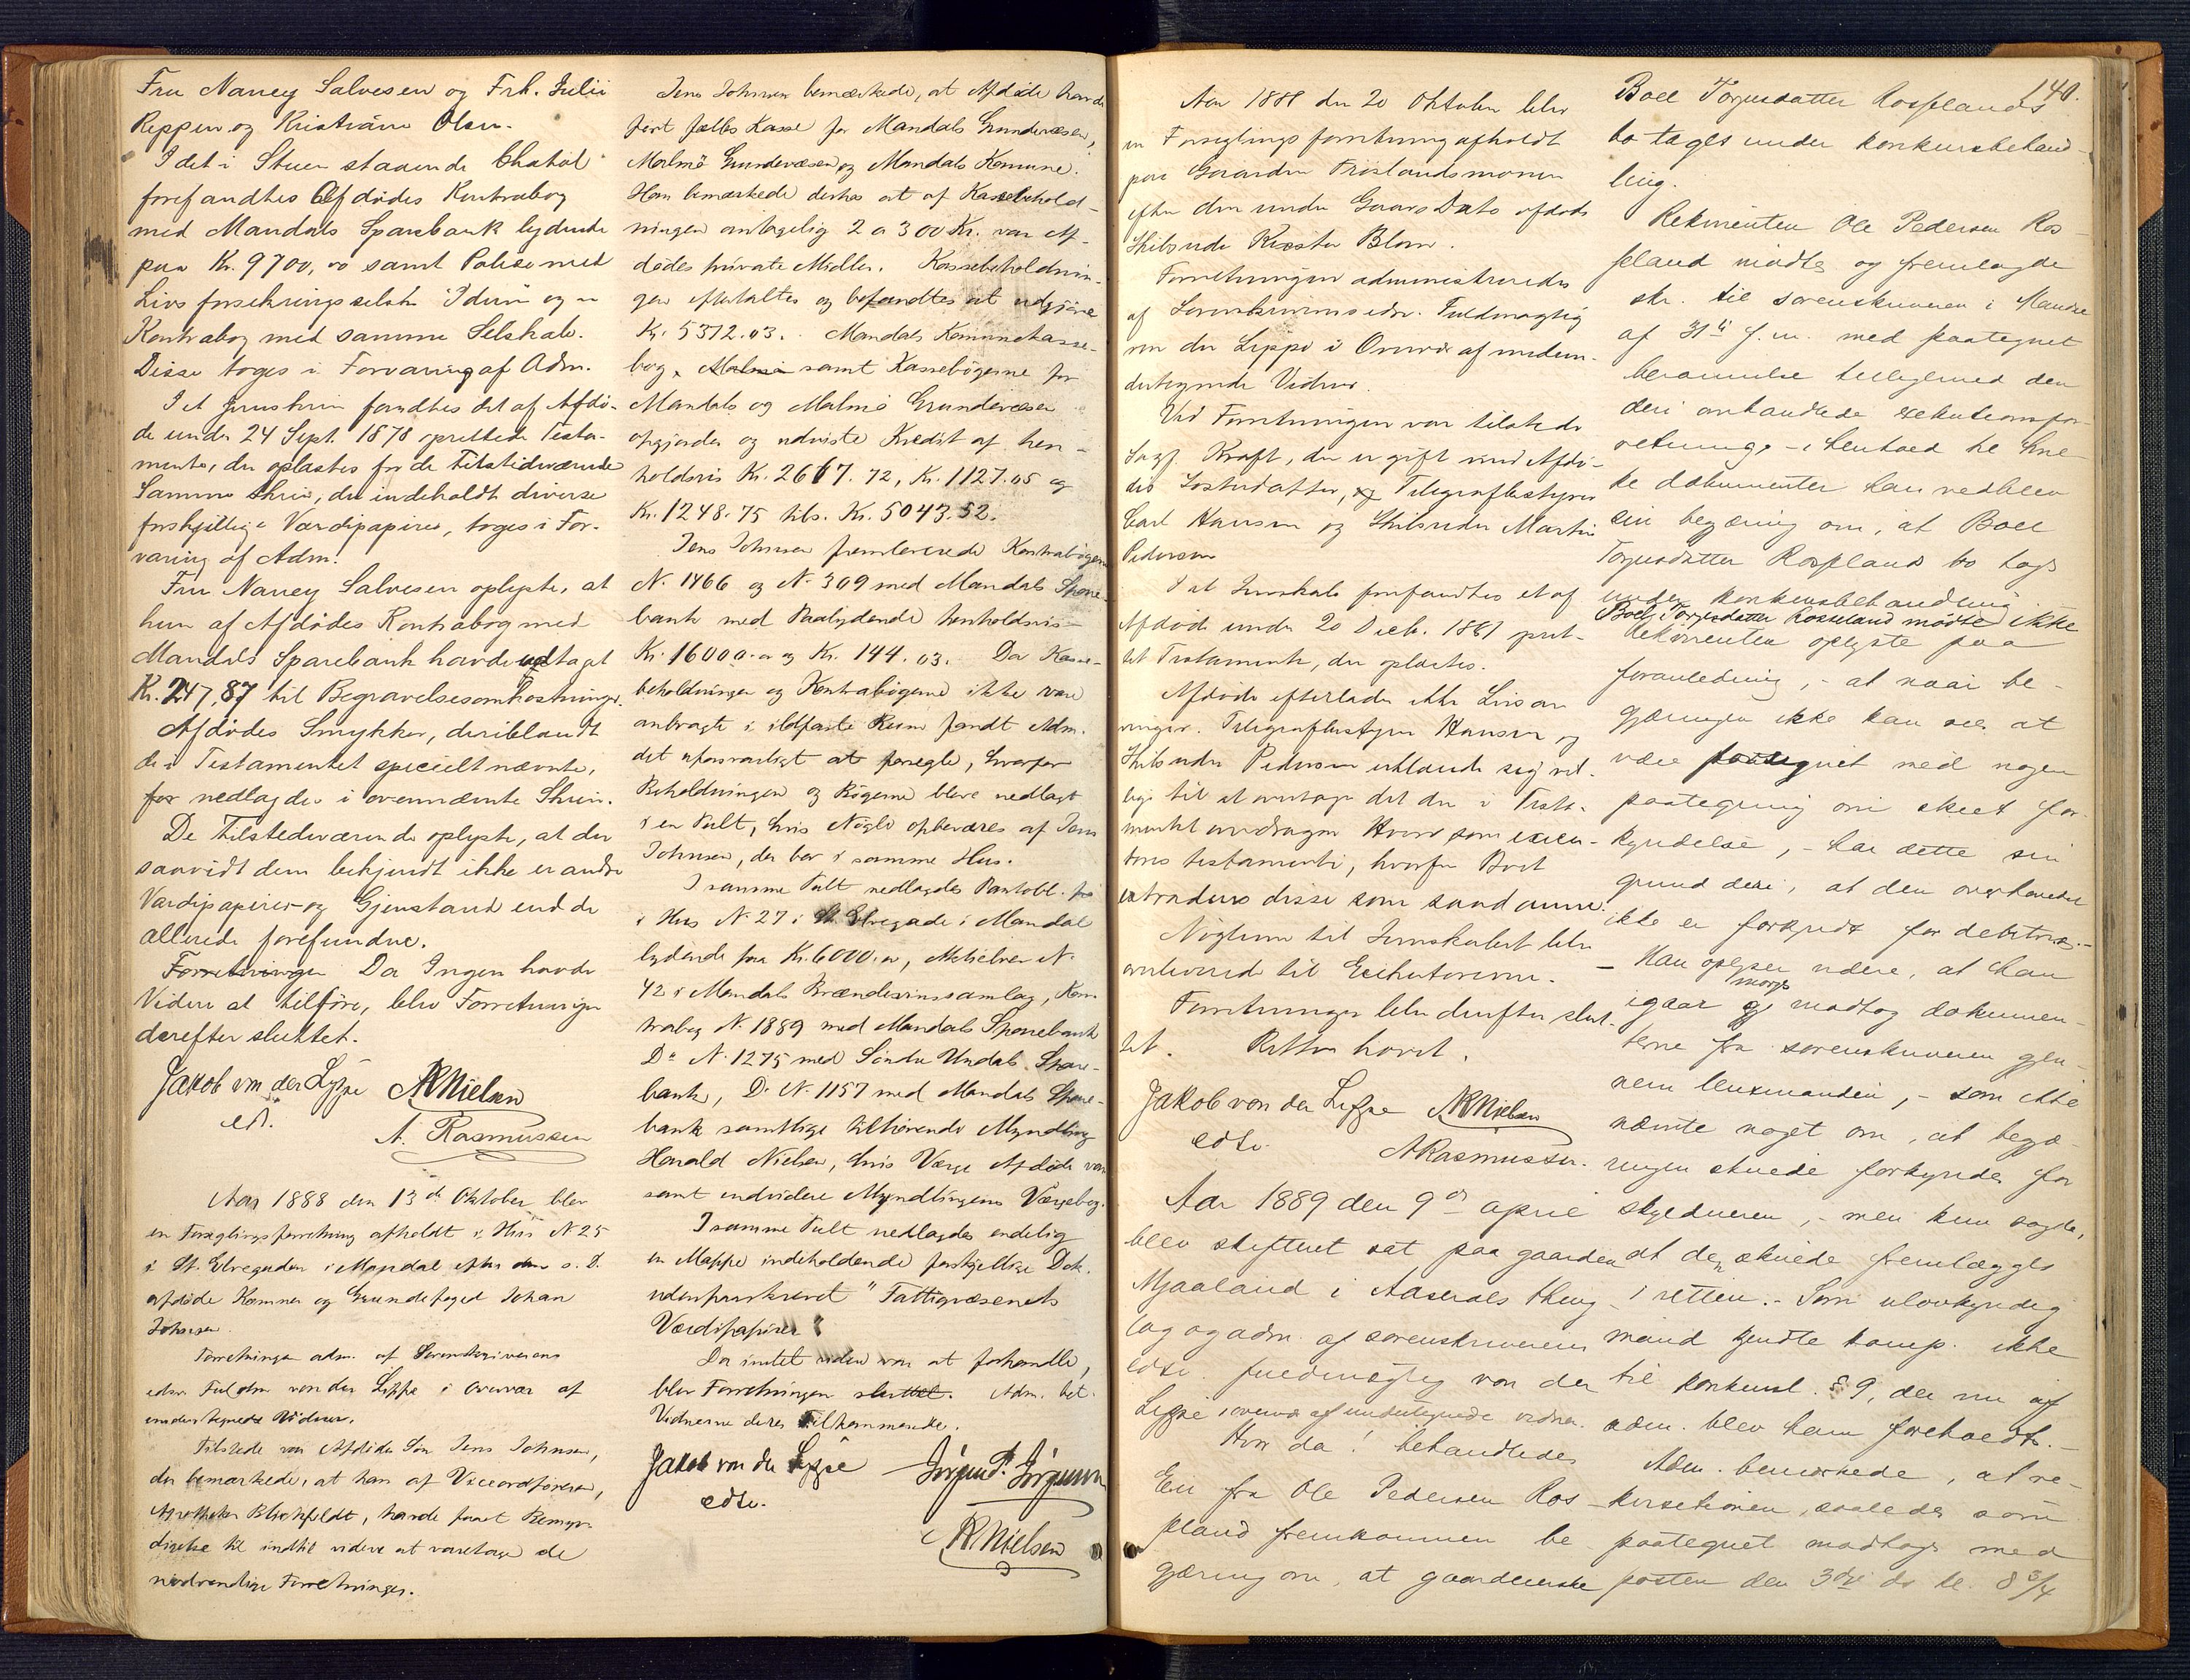 Fru Nancy Salvesen og Frk. Julie
Reppen og Kristiane Olsen.
I det i Stuen staaende Chatol
forefandtes Afdødes Kontrabog
med Mandals Sparebank lydende
paa Kr. 9700,00 samt Police med
Livsforsikringsselsk. "Idun" og en
Kontrabog med samme Selskab.
Disse toges i Forvaring af Adm.
I et Jernskrin fandtes det af Afdø-
de under 24 Sept. 1878 oprettede Testa-
mente, der oplæstes for de Tilstedeværende
Samme Skrin, der indeholdt diverse
forskjellige Værdipapirer, toges i For-
varing af Adm.
Fru Nancy Salvesen oplyste, at
hun af Afdødes Kontrabog med
Mandals Sparebank havde udtaget
Kr. 247,87 til Begravelsesomkostninger.
Afdødes Smykker, deriblandt
de i Testamentet specielt nævnte,
for nedlagdes i ovennævnte Skrin.
De Tilstedeværende oplyste, at der
saavidt dem bekjendt ikke er andre
Værdipapirer og Gjenstande end de
allerede forefundne.
Forretningen Da Ingen havde
Videre at tilføre, blev Forretningen
derefter sluttet.
Jakob von der Lippe AR Nielsen
edsv.
A. Rasmussen
Aar 1888 den 13de Oktober blev
en Forseglingsforretning afholdt i Hus N 25
i St. Elvegaden i Mandal efter den s. D.
afdøde Kæmner og Grundefoged Johan
Johnsen.
Forretningen adm. af Sorenskriverens
edsv. Fuldm. von der Lippe i Overvær af
undertegnede Vidner.
Tilstede var Afdødes Søn Jens Johnsen,
der bemærkede, at han af Viceordføreren,
Apotheker Blichfeldt, havde faaet Bemyn-
digelse til indtil videre at varetage de
nødvendige Forretninger.
Jens Johnsen bemærkede, at Afdøde havde
ført fælles Kasse for Mandals Grundevæsen,
Malmø Grundevæsen og Mandals Komune.
Han bemærkede derhos at af Kassebehold-
ningen antagelig 2 a 300 Kr. var Af-
dødes private Midler. Kassebeholdnin-
gen eftertaltes og befandtes at udgjøre
Kr. 5312.03. Mandals Komunekasse-
bog, Malmø samt Kassebøgerne for
Mandals og Malmø Grundevæsen
opgjordes og udviste Kredit af hen-
holdsvis Kr. 2667.72, Kr. 1127.05 og
Kr. 1248.75 tils. Kr. 5043.52.
Jens Johnsen fremleverede Kontrabøgerne
N. 1466 og N. 309 med Mandals Spare-
bank med Paalydende henholdsvis
Kr. 16000.00 og Kr. 144.03. Da Kasse-
beholdningen og Kontrabøgerne ikke vare
anbragte i ildfaste Rum fandt Adm.
det uforsvarligt at forsegle, hvorfor
Beholdningen og Bøgerne bleve nedlagt
i en Pult, hvis Nøgle opbevares af Jens
Johnsen, der bor i samme Hus.
I samme Pult nedlagdes Pantobl. fra
i Hus N. 27 i St. Elvegade i Mandal
lydende paa Kr. 6000.00, Aktiebrev N.
42 i Mandals Brændevinssamlag, Kon-
trabog N. 1889 med Mandals Sparebank
Do N. 1275 med Søndre Undals Spare-
bank, Do N. 1157 med Mandals Spare-
bank samtlige tilhørende Myndling
Harald Nielsen, hvis Værge Afdøde var
samt endvidere Myndlingens Værgebog.
I samme Pult nedlagdes endelig
en Mappe indeholdende forskjellige Dok.
udenpaaskrevet "Fattigvæsenets
Værdipapirer"
Da intet videre var at forhandle,
blev Forretningen sluttet. Adm. bet.
Vidnerne deres Tilkommende.
Jakob von der Lippe Jørgen P. Jørgensen
edsv.
AR Nielsen
140.
Aar 1888 den 20 Oktober blev
en Forseglingsforretning afholdt
paa Gaarden Frøslandsmonen
efter den under Gaars Dato afdøde
Skibsreder Kirsten Blom.
Forretningen administreredes
af Sorenskriverens edsv. Fuldmægtig
von der Lippe i Overvær af neden-
dertegnede Vidner.
Ved Forretningen var tilstede
Sagf. Kraft, der er gift med Afdø-
des Søsterdatter, og Telegrafbestyrer
Carl Hansen og Skibsreder Martin
Pedersen
I et Jernskab forefandtes et af
Afdøde under 20 Decb. 1881 opret-
tet Testamente, der oplæstes.
Afdøde efterlader ikke Livsar-
vinger. Telegrafbestyrer Hansen og
Skibsreder Pedersen erklærede sig vil-
lige til at overtage det dem i Testa-
mentet overdragne Hverv som execu-
tores testamenti, hvorfor Boet
extraderes disse som saadanne.
Nøglerne til Jernskabet blev
overleveret til Exekutorerne.
Forretningen blev derefter slut-
tet. Retten hævet.
Jakob von der Lippe AR Nielsen
edsv. A Rasmussen.
Aar 1889 den 9de april
blev skifteret sat paa gaarden
Mjaaland i Aaserals thing-
lag og adm. af sorenskriverens
edsv. fuldmægtig von der
Lippe i overvær af undertegnede vidner.
Hvor da! behandledes
En fra Ole Pedersen Ros-
pland fremkommen be-
gjæring om, at gaardenske
Boel Torjusdatter Rosplands
bo tages under konkursbehand-
ling.
Rekvirenten Ole Pedersen Ros-
pland mødte og fremlagde
skr. til sorenskriveren i Mandal
af 31te f. m. med paategnet
berammelse tilligemed den
deri omhandlede exekutionsfor-
retning, - i henhold til hvil-
ke dokumenter han vedblev
sin begjæring om, at Boel
Torjusdatter Rosplands bo toges
under konkursbehandling
Boel Torjusdatter Roseland mødte ikke
Rekvirenten oplyste paa
foranledning, - at naar be-
gjæringen ikke kan sees at
være paategnet med nogen
paategning om skeet for-
kyndelse, - har dette sin
grund deri, at den overhovedet
ikke er forkyndt for debitrix. -
Han oplyser videre, at han
igaar morgs modtog dokumen-
terne fra sorenskriveren gjen-
nem lensmanden, - som ikke
nævnte noget om, at begjæ-
ringen skulde forkyndes for
skyldneren, - men kun sagde,
at den skulde fremlægges
i retten. - Som ulovkyndig
mand kjendte komp. ikke
til konkursl. § 9, der nu af
adm. blev ham foreholdt. -
Adm. bemærkede, at re-
kvisitionen, saaledes som
paategnet modtoges med
posten den 3die ds kl. 8 3/4